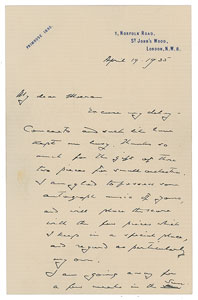 PRIMROSE 1890.
5, NORFOLK ROAD,
ST JOHN'S WOOD,
LONDON, N.W.8.
April 19 1935
My dear
Excuse my delay –
Concerts and such like have
kept me busy. Thanks so
much for the gift of these
two pieces for small orchestra.
I am glad to possess some
autograph music of yours,
and will place the score
with the few pieces which
I keep in a special place,
and regard as particularly
my own.
I am going away for
a few weeks in the